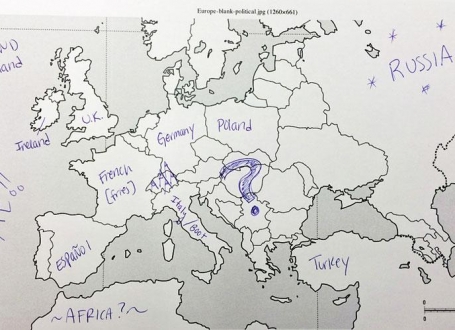 Europe-blank-political.jpg (1260×661)
RUSSIA
U.K.
Ireland
Germany
Poland
French
[fries]
?
Italy/Boot
ESPAÑOl
Turkey
~AFRICA?~
0
0